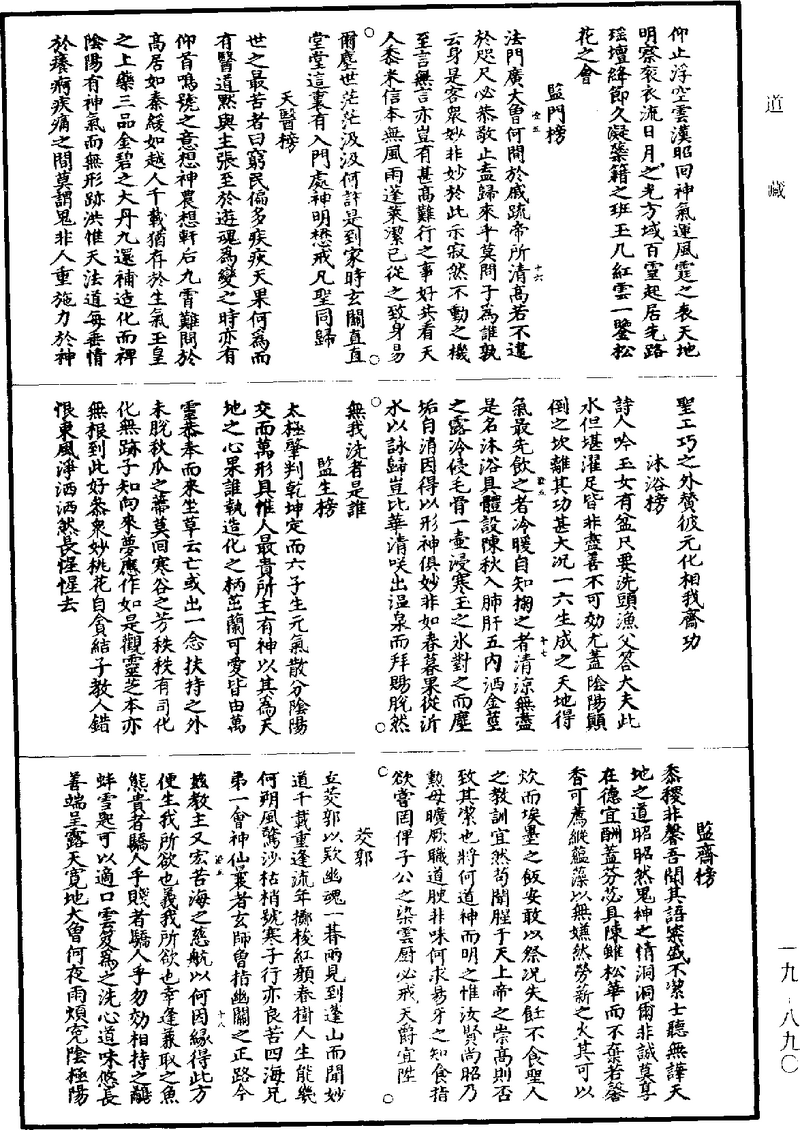 道藏
仰止浮空雲漢昭回神氣運風霆之表天地
明察袞衣流日月之光方域百靈起居先路
瑶壇絳節久凝蘂籍之班玉几紅雲一鑒松
花之會
監門榜
法門廣大曾何間於戚疏帝所清高若不違
於咫尺必恭敬止盍歸來乎莫問子為誰孰
云身是客衆妙非妙於此示寂然不動之機
至言無言亦豈有甚高難行之事好共看天
人黍米信本無風雨蓬萊潔已從之致身易
爾塵世茫茫汲汲何許是到家時玄關直直
堂堂這裏有入門處神明懋戒凡聖同歸
天醫榜
世之最苦者曰窮民偏多疾疢天果何為而
有醫道默與主張至於遊魂為變之時亦有
仰首鳴號之意想神農想軒后九霄難問於
高居如秦緩如越人千載猶存於生氣玉皇
之上藥三品金碧之大丹九還補造化而裨
陰陽有神氣而無形跡洪惟天法道每垂情
於癢痾疾痛之間莫謂鬼非人重施力於神
聖工巧之外贊彼元化相我齋功
沐浴榜
詩人吟玉女有盆尺要洗頭漁父答大夫此
水但堪濯足皆非盡善不可効尤蓋陰陽顛
倒之坎離其功甚大況一六生成之天地得
氣最先飲之者冷暖自知掬之者清涼無盡
是名沐浴具體設陳秋入肺肝五内洒金莖
之露冷侵毛骨一壺浸寒玉之氷對之而塵
垢自消因得以形神俱妙非如春暮果從沂
水以詠歸豈比華清咲出温泉而拜賜脫然
無我洗者是誰
監生榜
太極肇判乾坤定而六子生元氣散分陰陽
交而萬形具惟人最貴所主有神以其為天
地之心果誰執造化之柄茁蘭可愛皆由萬
靈恭奉而來坐草云亡或出一念扶持之外
未脫秋瓜之蔕莫回寒谷之芳秩秩有司化
化無跡子知向來夢應作如是觀靈芝本亦
無根到此好叅衆妙桃花自貪結子教人錯
恨東風淨洒洒然長惺惺去
監齋榜
黍稷非馨吾聞其語粢盛不潔士聽無譁天
地之道昭昭然鬼神之情洞洞爾非誠莫享
在德宜酬蓋芬苾具陳雖松華而不棄若馨
香可薦縱蘊藻以無嫌然勞薪之火其可以
炊而埃墨之飯安敢以祭況失飪不食聖人
之教訓宜然苟聞腥于天上帝之崇高則否
致其潔也將何道神而明之惟汝賢尚昭乃
勲毋曠厥職道腴非味何求易牙之知食指
欲嘗固俾子公之染雲厨必戒天爵宜陞
茭郭
立茭郭以欵幽魂一暮雨見到蓬山而聞妙
道千載重逢流年擲梭紅顏春樹人生能幾
何朔風驚沙枯梢號寒子行亦良苦四海兄
弟一會神仙囊者玄師曾指幽關之正路今
兹教主又宏苦海之慈航以何因緣得此方
便生我所欲也義我所欲也幸逢兼取之魚
熊貴者驕人乎賤者驕人乎勿効相持之鷸
蚌雪匙可以適口雲笈為之洗心道味悠長
善端呈露天寛地大曾何夜雨煩寃陰極陽
一九-八九〇